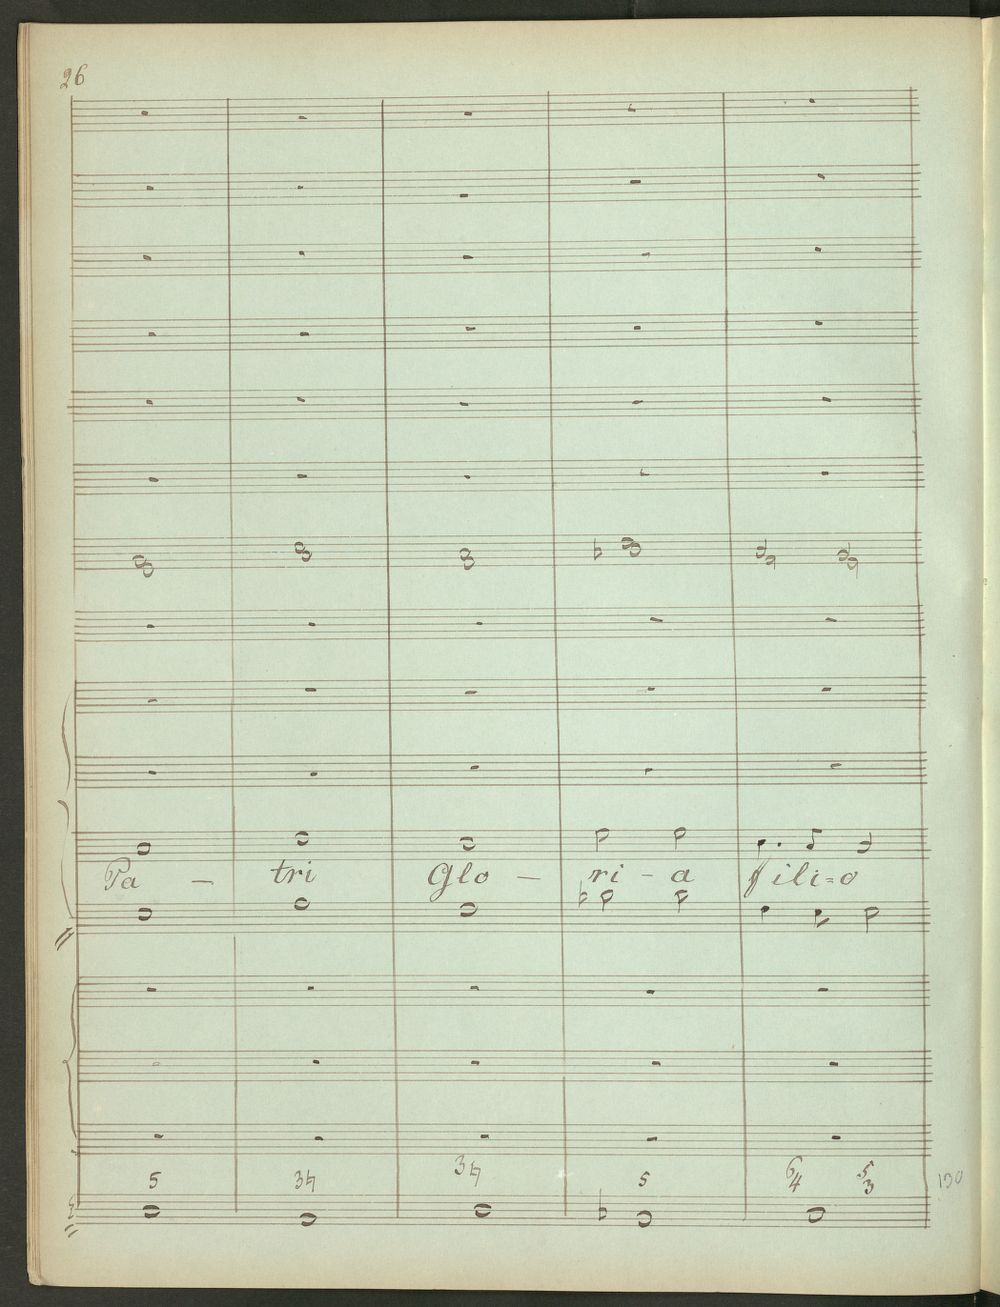 26
Pa - tri Glo - ri - a filio
5 3♮ 3♮ 5 6/4 5/3
130